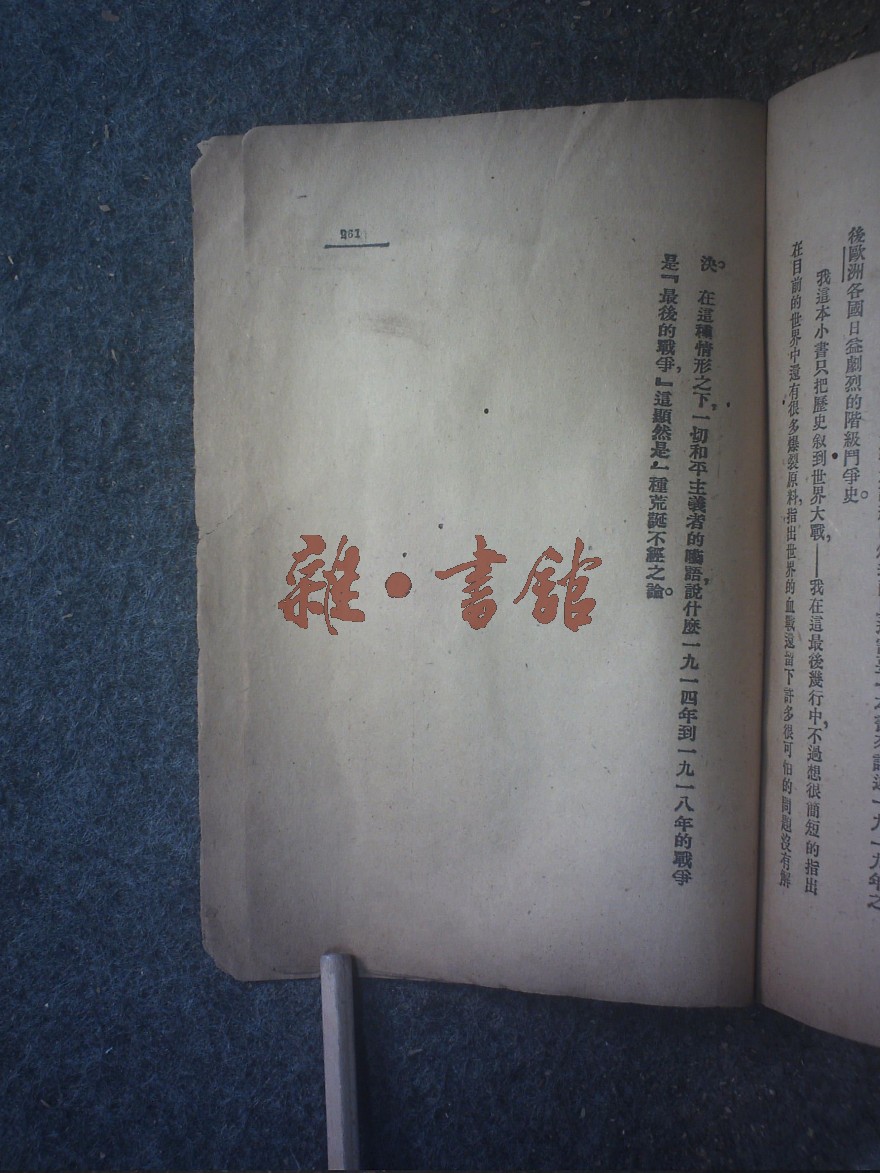 一九一九年之
後歐洲各國日益劇烈的階級鬥爭史。
我這本小書只把歷史叙到世界大戰,——我在這最後幾行中,不過想很簡短的指出
在目前的世界中還有很多爆裂原料,指出世界的血戰還留下許多很可怕的問題沒有解
決。
在這種情形之下,一切和平主義者的囈語,說什麽一九一四年到一九一八年的戰爭
是『最後的戰爭,』這顯然是一種荒誕不經之論。
261
雜·書館